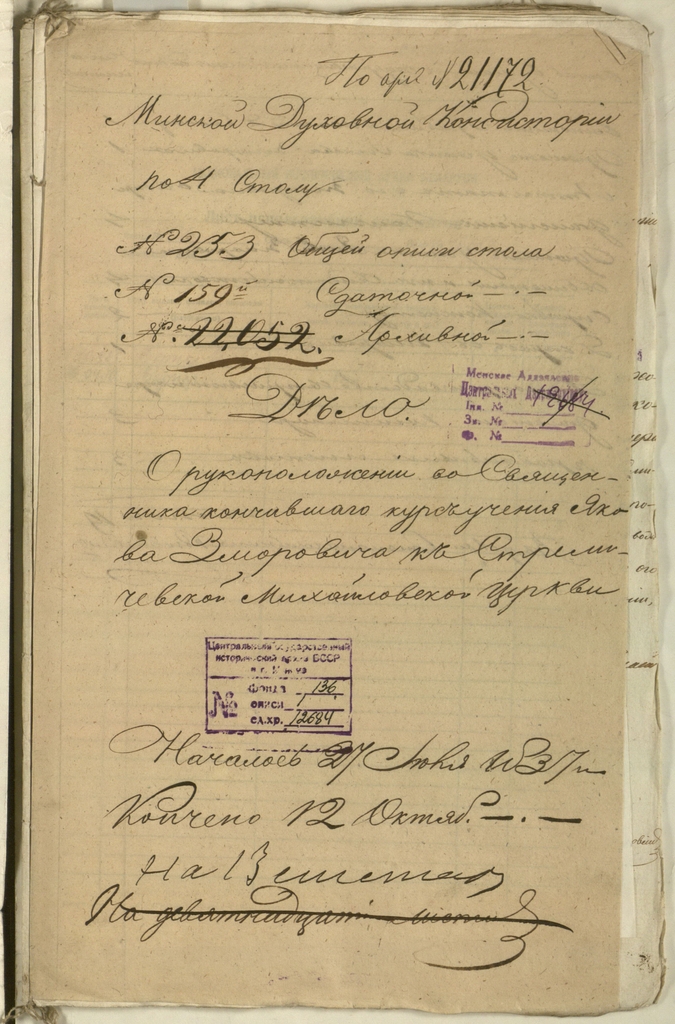 По арх №21172
Минской Духовной Консисторіи
по 4 Столу
№ 253 Общей описи стола
№ 159й Сдаточной — . —
№. 22,052. Архивной — . —
Дѣло.
Менскае Аддзяленьне
Цэнтральн
Інв. №
Зв. №
Ф. №
О рукоположеніи во Священ-
ника кончившаго курсъ ученія Яко
ва Зморовича къ Стрели-
чевской Михайловской Церкви
Центральный государственный
исторический архив БССР
в г. Минске
№ фонда 136
описи 1
ед.хр. 12684
Началось 27 Іюля 1837 г.
Кончено 12 Октяб. — . —
На 13 листах
На девятнадцати листах